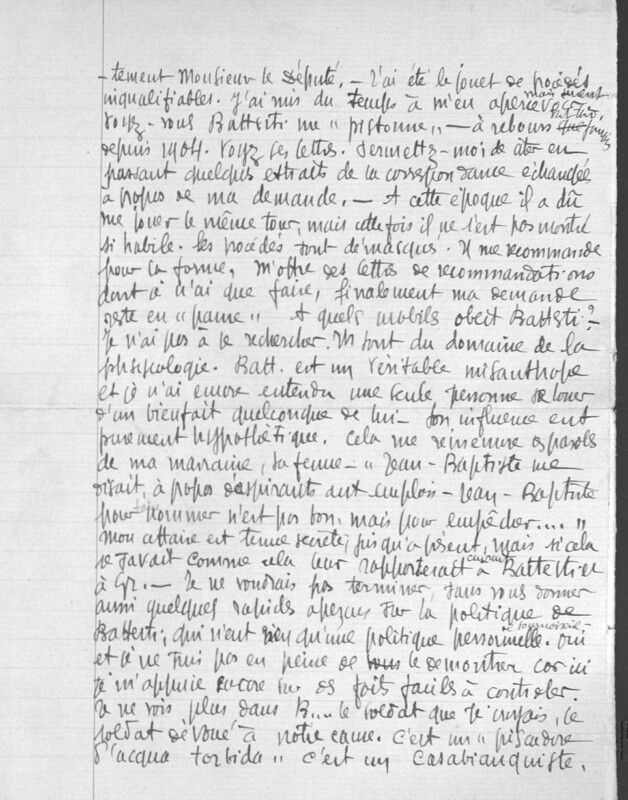 -tement Monsieur le Député. - J'ai été le jouet de procédés
inqualifiables. J'ai mis du temps à m'en apercevoir,
mais
Voyez-vous Battesti me "pistonne" - à rebours
depuis 1904. Voyez ses lettres. Permettez-moi de citer en
passant quelques extraits de la correspondance échangée
à propos de ma demande. - A cette époque il a dû
me jouer le même tour, mais cette fois il ne s'est pas montré
si habile. Ses procédés sont démasqués. Il me recommande
pour la forme, m'offre des lettres de recommandations
dont je n'ai que faire, finalement ma demande
reste en "panne" A quels mobiles obéit Battesti? -
Je n'ai pas à le rechercher. Ils sont du domaine de la
phsycologie. Batt. est un véritable misanthrope
et je n'ai encore entendu une seule personne se louer
d'un bienfait quelconque de lui - Son influence est
purement hypothétique. Cela me remémore les paroles
de ma marraine, sa femme - "Jean-Baptiste me
disait, à propos d'aspirants aux emplois - Jean-Baptiste
pour nommer n'est pas bon, mais pour empêcher.... "
Mon affaire est tenue secrète, jusqu'à présent, mais si cela
se savait comme cela leur rapporterait à Battesti et
à Gr. - Je ne voudrais pas terminer, sans vous donner
aussi quelques rapides aperçus sur la politique de
Battesti, qui n'est rien qu'une politique personnelle. Oui
et je ne suis pas en peine de vous le démontrer car ici
je m'appuie encore sur des faits faciles à contrôler.
Je ne vois plus dans B.... le soldat que je croyais, le
soldat dévoué à notre cause. C'est un "piscadore
d'acqua torbida" c'est un Casabianquiste.